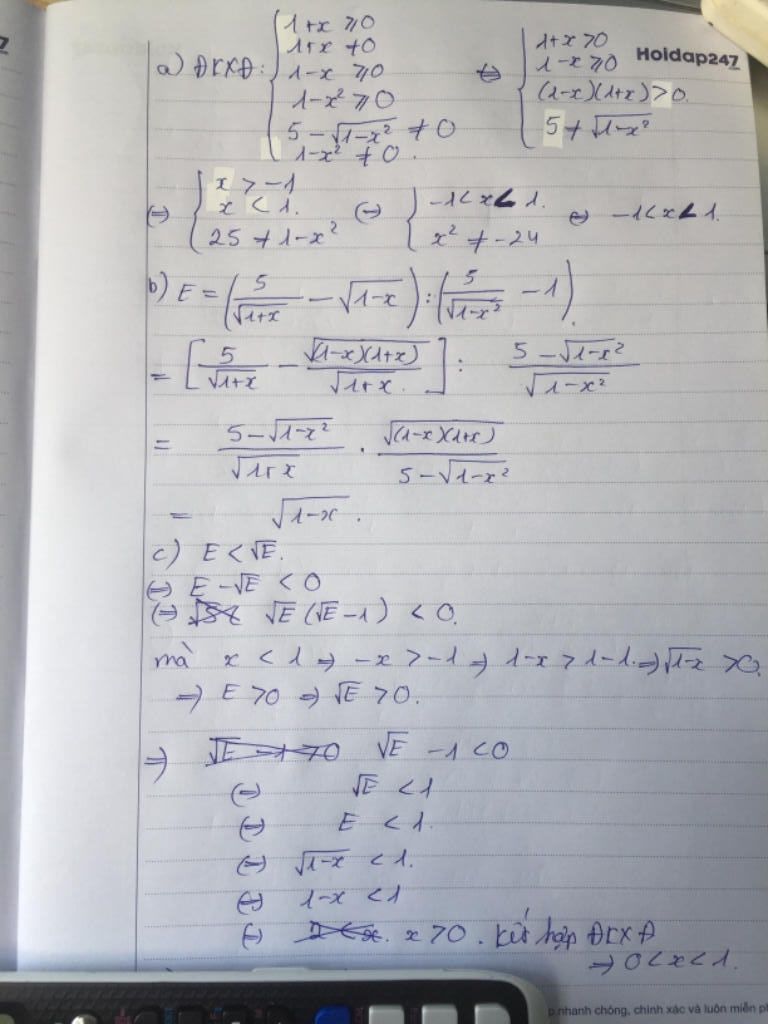 7
Hoidap247
a) ĐKXĐ: { 1+x ≥ 0
1+x ≠ 0
1-x ≥ 0
1-x² ≥ 0
5 - √(1-x²) ≠ 0
1-x² ≠ 0.
⇔ { 1+x > 0
1-x ≥ 0
(1-x)(1+x) > 0.
5 ≠ √(1-x²)
⇔ { x > -1
x < 1.
25 ≠ 1-x²
⇔ { -1 < x < 1.
x² ≠ -24
⇔ -1 < x < 1.
b) E = (5/√(1+x) - √(1-x)) : (5/√(1-x²) - 1).
= [5/√(1+x) - √((1-x)(1+x))/√(1+x).] : (5-√(1-x²))/√(1-x²)
= (5-√(1-x²))/√(1+x) . √((1-x)(1+x))/(5-√(1-x²))
= √(1-x).
c) E < √E.
⇔ E - √E < 0
⇔ √E (√E - 1) < 0.
mà x < 1 ⇒ -x > -1 ⇒ 1-x > 1-1. ⇒ √(1-x) > 0.
⇒ E > 0 ⇒ √E > 0.
⇒ √E - 1 > 0 √E - 1 < 0
⇔ √E < 1
⇔ E < 1.
⇔ √(1-x) < 1.
⇔ 1-x < 1
⇔ x > 0. Kết hợp ĐKXĐ
⇒ 0 < x < 1.
p nhanh chóng, chính xác và luôn miễn ph